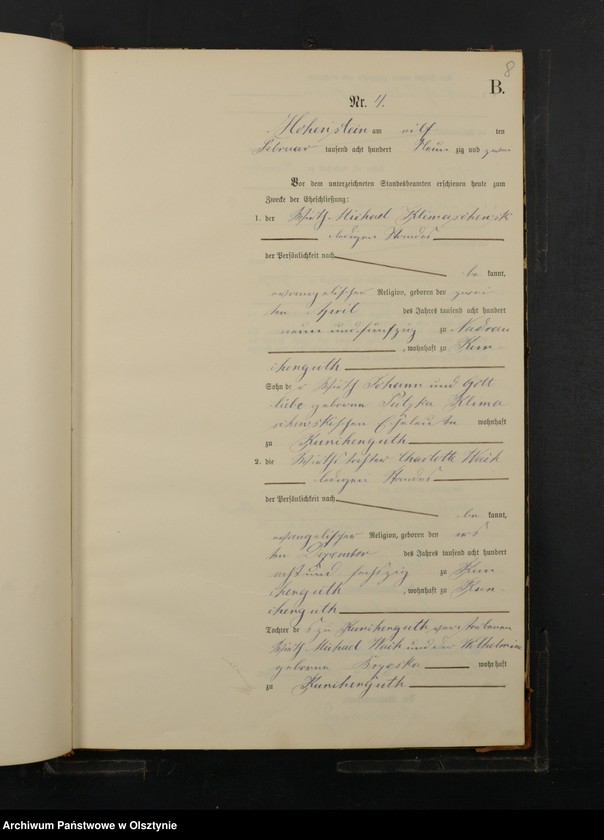 8
B.
Nr. 4.
Hohenstein am eilf ten
Februar tausend acht hundert Neun zig und zwei
Vor dem unterzeichneten Standesbeamten erschienen heute zum
Zwecke der Eheschließung:
1. der Wirth Michael Klimaschewski
ledigen Standes
der Persönlichkeit nach
be kannt,
evangelischer Religion, geboren den zwei
ten April des Jahres tausend acht hundert
neun und fünfzig zu Nadrau
, wohnhaft zu Kun
chenguth
Sohn de r Wirth Johann und Gott
liebe geborene Klima
schewskischen Eheleute wohnhaft
zu Kunchenguth
2. die Wirthstochter Charlotte
ledigen Standes
der Persönlichkeit nach
be kannt,
evangelischer Religion, geboren den
ten Dezember des Jahres tausend acht hundert
acht und sechszig zu Kun
chenguth , wohnhaft zu Kun-
chenguth
Tochter de s zu Kunchenguth verstorbenen
Wirth Michael und der Wilhelmine
geborene wohnhaft
zu Kunchenguth
Archiwum Państwowe w Olsztynie